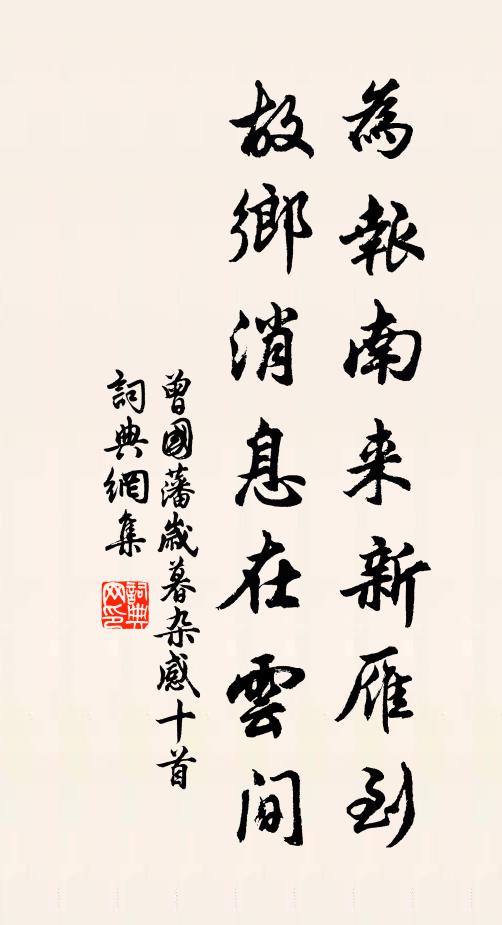 為報南来新雁到
故鄉消息在雲間
曾國藩歲暮杂感十首
詞典網集
詞典网印